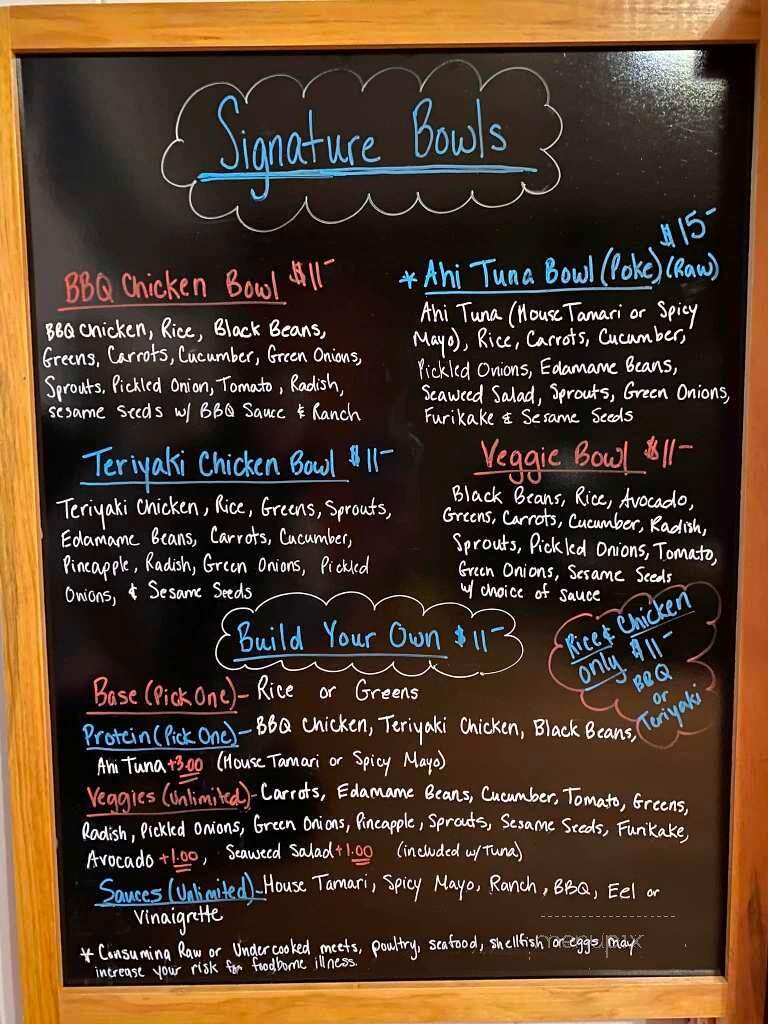 Signature Bowls
BBQ Chicken Bowl $11-
BBQ Chicken, Rice, Black Beans,
Greens, Carrots, Cucumber, Green Onions,
Sprouts, Pickled Onion, Tomato, Radish,
sesame seeds w/ BBQ Sauce & Ranch
$15-
* Ahi Tuna Bowl (Poke) (Raw)
Ahi Tuna (House Tamari or Spicy
Mayo), Rice, Carrots, Cucumber,
Pickled Onions, Edamame Beans,
Seaweed Salad, Sprouts, Green Onions,
Furikake & Sesame Seeds
Teriyaki Chicken Bowl $11-
Teriyaki Chicken, Rice, Greens, Sprouts,
Edamame Beans, Carrots, Cucumber,
Pineapple, Radish, Green Onions, Pickled
Onions, & Sesame Seeds
Veggie Bowl $11-
Black Beans, Rice, Avocado,
Greens, Carrots, Cucumber, Radish,
Sprouts, Pickled Onions, Tomato,
Green Onions, Sesame Seeds
w/ choice of sauce
Build Your Own $11-
Rice & Chicken
only $11-
BBQ
or
Teriyaki
Base (Pick One)- Rice or Greens
Protein (Pick One)- BBQ Chicken, Teriyaki Chicken, Black Beans,
Ahi Tuna +3.00 (House Tamari or Spicy Mayo)
Veggies (Unlimited)- Carrots, Edamame Beans, Cucumber, Tomato, Greens,
Radish, Pickled Onions, Green Onions, Pineapple, Sprouts, Sesame Seeds, Furikake,
Avocado +1.00, Seaweed Salad +1.00 (included w/Tuna)
Sauces (Unlimited)- House Tamari, Spicy Mayo, Ranch, BBQ, Eel or
Vinaigrette
* Consuming Raw or Undercooked meets, poultry, seafood, shellfish or eggs may
increase your risk for foodborne illness.
menupix